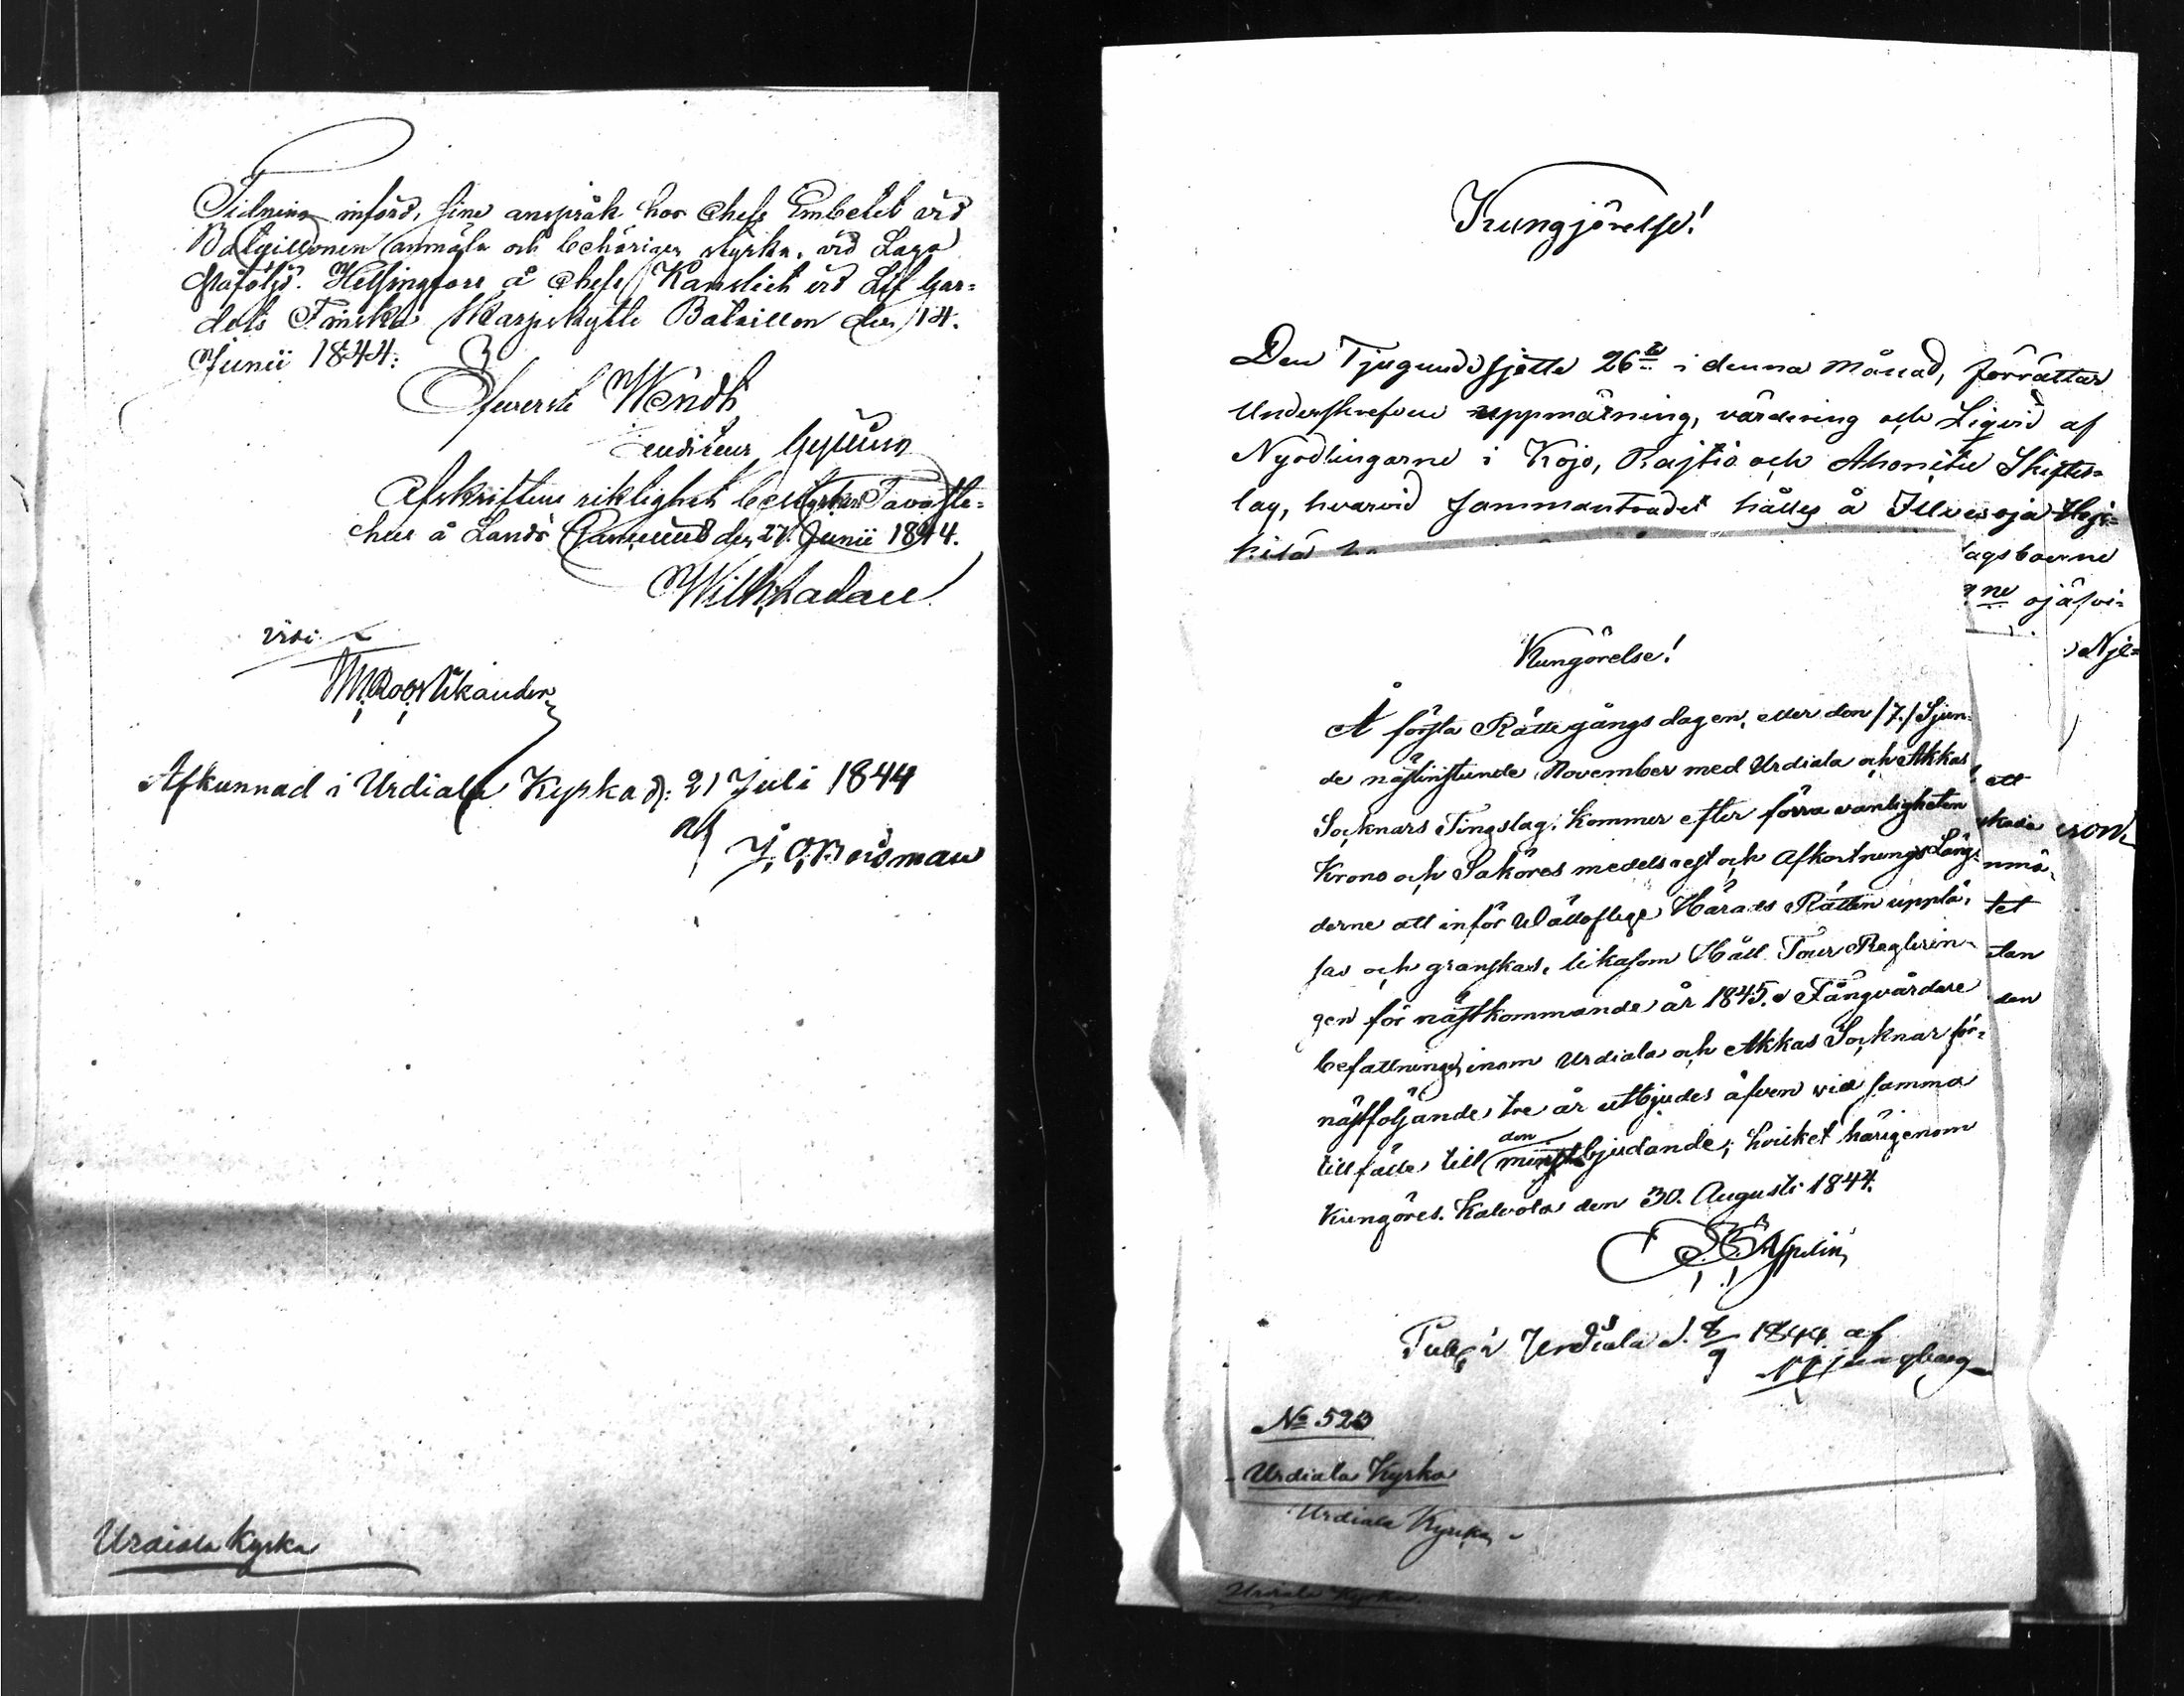 Tidning införd, sine anspråk hos Chefs Embetet vid
Bataillonen anmäla och behörigen styrka, vid Laga
påföljd. Helsingfors å Chefs Kansliet vid Lif Gar-
dets Finska Skarpskytte Bataillon den 14.
Junii 1844.
Öfverste Wendt
Auditeur
Afskriftens riktighet bestyrker Tavaste-
hus å Lands Cancelliet den 27. Junii 1844.
Wilh. Ladau
Afkunnad i Urdiala Kyrka d: 21 Juli 1844
af J. O. Roisman
Urdiala Kyrka
Kungjörelse!
Den Tjugundesjette 26te i denna Månad, förrättar
Underskrefven uppmätning, värdering och Liqvid af
Nyodlingarne i Kojo, Rajtio och Ahonitu Skiftes-
lag, hvarvid sammanträdet hålles å Ilvesoja Hej-
kilä
lagsboerne
ne ojäfvi-
Nje-
Kungörelse!
Å första Rättegångs dagen, eller den /7./ Sjun-
de nästinstundе November med Urdiala och Akkas
Socknars Tingslag, kommer efter förra vanligheten
Krono och Saköres medels rest och Afkortnings Läng-
derne att inför Wällofliga Härads Rätten upplä-
sas och granskas, likasom Håll Tour Reglerin-
gen för nästkommande år 1845. Fångvårdare
befattningen inom Urdiala och Akkas Socknar för
nästföljande tre år utbjudes äfven vid samma
tillfälle till den minstbjudande; hvilket härigenom
Kungöres. Kalvola den 30. Augusti 1844.
Aspelin
ett
tet
utan
den
Publ. i Urdiala d. 8/9 1844. af
Ljungberg
No 523
Urdiala Kyrka
Urdiala Kyrka
Urdiala Kyrka